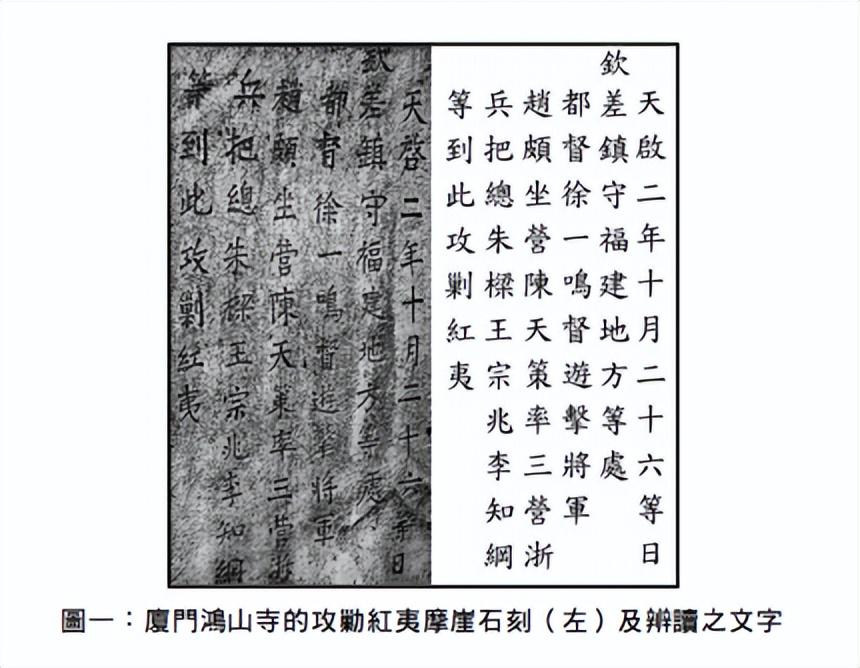 天啟二年十月二十六等日
欽差鎮守福建地方等處
都督徐一鳴督遊擊將軍
趙頗坐營陳天策率三營浙
兵把總朱樑王宗兆李知綱
等到此攻剿紅夷
天啓二年十月二十六等日
欽差鎮守福建地方等處
都督徐一鳴督遊擊將軍
趙頗坐營陳天策率三營浙
兵把總朱樑王宗兆李知綱
等到此攻剿紅夷
圖一：廈門鴻山寺的攻勦紅夷摩崖石刻（左）及辨讀之文字